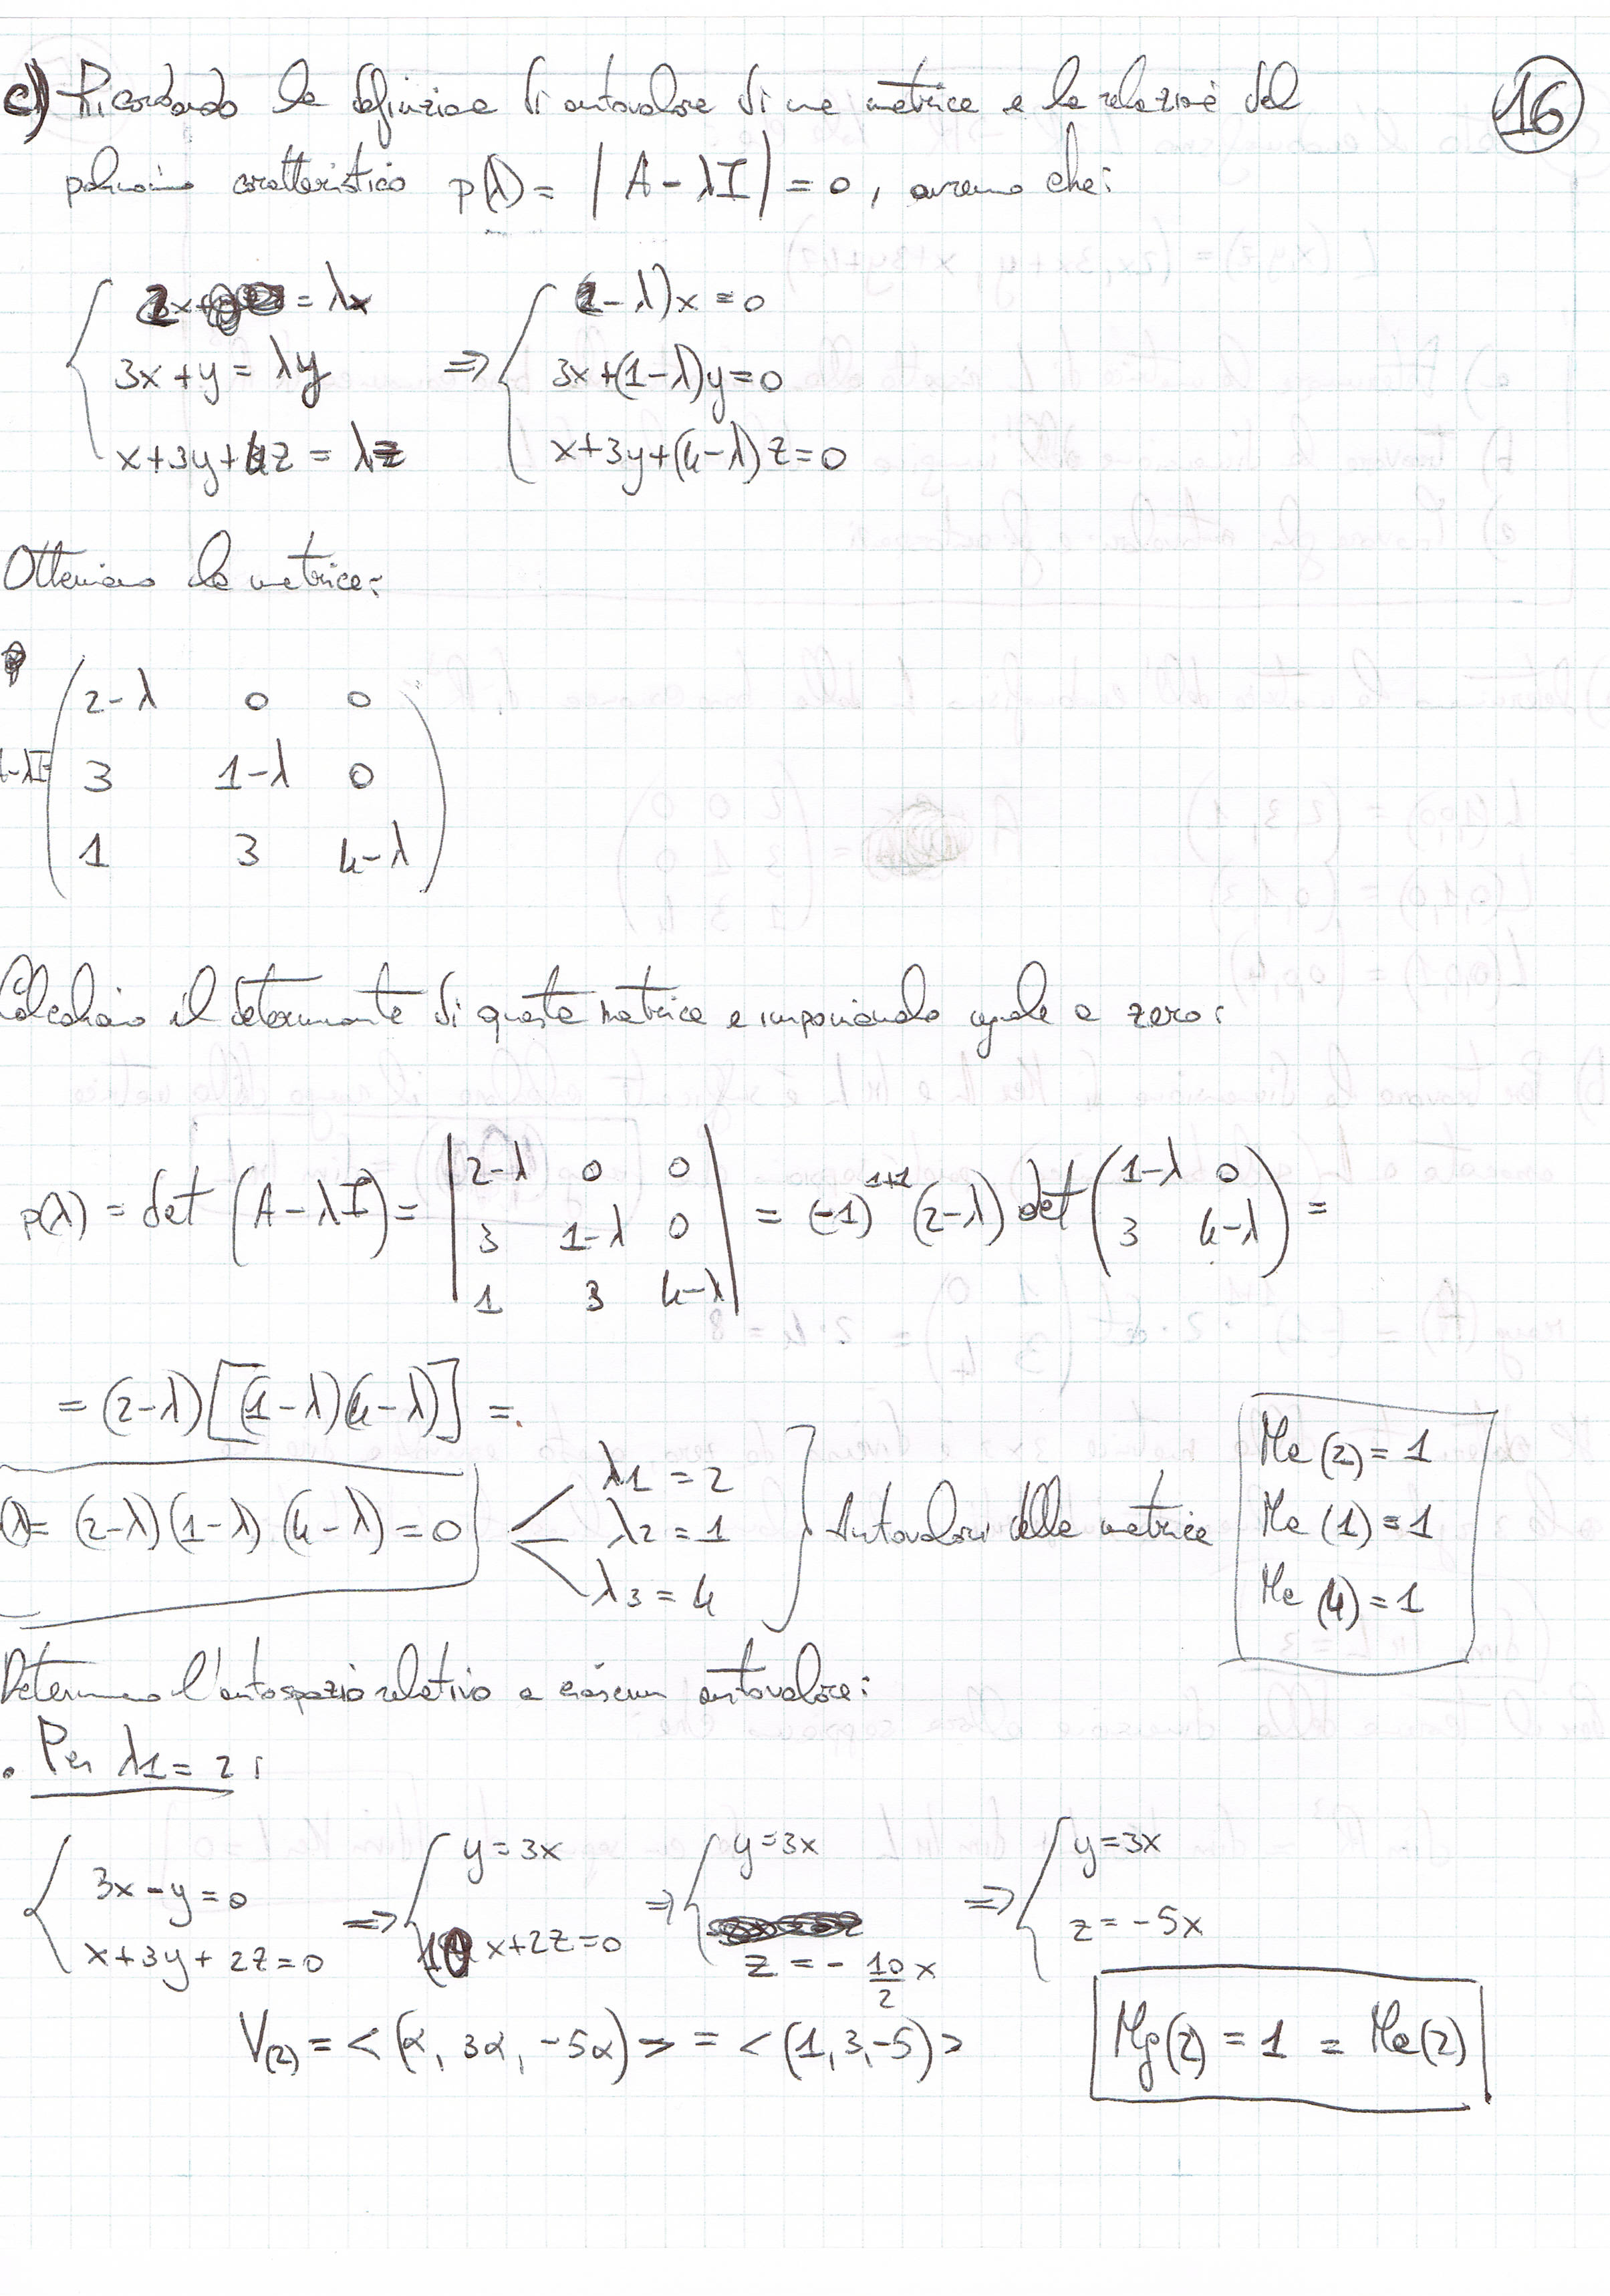 c) Ricordando la definizione di autovalore di una matrice e la relazione del
16
polinomio caratteristico p(λ) = |A - λI| = 0, avremo che:
{ 2x = λx ⇒ { (2-λ)x = 0
3x + y = λy 3x + (1-λ)y = 0
x + 3y + 4z = λz x + 3y + (4-λ)z = 0
Otteniamo la matrice:
2-λ 0 0
-λI 3 1-λ 0
1 3 4-λ
Calcoliamo il determinante di questa matrice e imponiamolo uguale a zero:
p(λ) = det (A - λI) = | 2-λ 0 0 | = (-1)^{1+1} (2-λ) det ( 1-λ 0 ) =
3 1-λ 0 3 4-λ
1 3 4-λ
= (2-λ)[(1-λ)(4-λ)] =
(λ) = (2-λ)(1-λ)(4-λ) = 0
λ1 = 2
λ2 = 1
λ3 = 4
Autovalori della matrice
Ma(2) = 1
Ma(1) = 1
Ma(4) = 1
Determino l'autospazio relativo a ciascun autovalore:
. Per λ1 = 2:
{ 3x - y = 0 ⇒ { y = 3x ⇒ { y = 3x ⇒ { y = 3x
x + 3y + 2z = 0 10x + 2z = 0 z = - 10/2 x z = -5x
V(2) = < (α, 3α, -5α) > = < (1, 3, -5) >
Mg(2) = 1 = Ma(2)